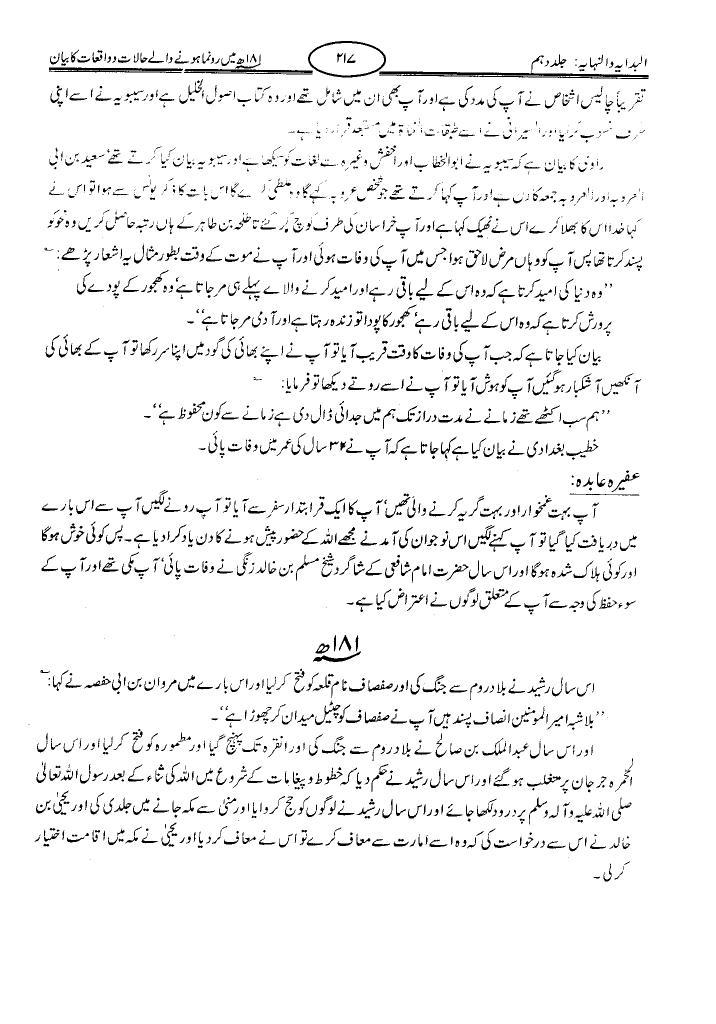 البدایہ والنہایہ: جلد دہم
۲۱۷
۱۸۱ھ میں رونما ہونے والے حالات و واقعات کا بیان
تقریباً چالیس اشخاص نے آپ کی مدد کی ہے اور آپ بھی ان میں شامل تھے اور وہ کتاب اصول الخلیل ہے اور سیبویہ نے اسے اپنی
طرف منسوب کر لیا اور السیرافی نے اسے طبقات النحاۃ میں مستبعد قرار دیا ہے۔
راوی کا بیان ہے کہ سیبویہ نے ابوالخطاب اور اخفش وغیرہ سے لغات کو سیکھا ہے اور سیبویہ بیان کیا کرتے تھے، سعید بن ابی
العروبہ اور العروبہ جمعہ کا دن ہے اور آپ کہا کرتے تھے جو شخص عروبہ کہے گا وہ غلطی کرے گا اس بات کا ذکر یونس سے ہوا تو اس نے
کہا خدا اس کا بھلا کرے اس نے ٹھیک کہا ہے اور آپ خراسان کی طرف کوچ کر گئے تا طلحہ بن طاہر کے ہاں رتبہ حاصل کریں وہ نحو کو
پسند کرتا تھا پس آپ کو وہاں مرض لاحق ہوا جس میں آپ کی وفات ہوئی اور آپ نے موت کے وقت بطور مثال یہ اشعار پڑھے:
’’وہ دنیا کی امید کرتا ہے کہ وہ اس کے لیے باقی رہے اور امید کرنے والا اے پہلے ہی مر جاتا ہے، وہ کھجور کے پودے کی
پرورش کرتا ہے کہ وہ اس کے لیے باقی رہے، کھجور کا پودا تو زندہ رہتا ہے اور آدمی مر جاتا ہے‘‘۔
بیان کیا جاتا ہے کہ جب آپ کی وفات کا وقت قریب آیا تو آپ نے اپنے بھائی کی گود میں اپنا سر رکھا تو آپ کے بھائی کی
آنکھیں اشکبار ہو گئیں آپ کو ہوش آیا تو آپ نے اسے روتے دیکھا تو فرمایا:
’’ہم سب اکٹھے تھے زمانے نے مدت دراز تک ہم میں جدائی ڈال دی ہے زمانے سے کون محفوظ ہے‘‘۔
خطیب بغدادی نے بیان کیا ہے کہا جاتا ہے کہ آپ نے ۳۲ سال کی عمر میں وفات پائی۔
عفیرہ عابدہ:
آپ بہت غمخوار اور بہت گریہ کرنے والی تھیں، آپ کا ایک قرابتدار سفر سے آیا تو آپ رونے لگیں آپ سے اس بارے
میں دریافت کیا گیا تو آپ کہنے لگیں اس نوجوان کی آمد نے مجھے اللہ کے حضور پیش ہونے کا دن یاد کرا دیا ہے۔ پس کوئی خوش ہوگا
اور کوئی ہلاک شدہ ہوگا اور اس سال حضرت امام شافعی کے شاگرد شیخ مسلم بن خالد زنگی نے وفات پائی، آپ مکی تھے اور آپ کے
سوء حفظ کی وجہ سے آپ کے متعلق لوگوں نے اعتراض کیا ہے۔
۱۸۱ھ
اس سال رشید نے بلاد روم سے جنگ کی اور صفصاف نام قلعہ کو فتح کر لیا اور اس بارے میں مروان بن ابی حفصہ نے کہا:
’’بلاشبہ امیر المومنین انصاف پسند ہیں آپ نے صفصاف کو چٹیل میدان کر چھوڑا ہے‘‘۔
اور اس سال عبدالملک بن صالح نے بلاد روم سے جنگ کی اور انقرہ تک پہنچ گیا اور مطمورہ کو فتح کر لیا اور اس سال
الحمرہ جرجان پر متغلب ہو گئے اور اس سال رشید نے حکم دیا کہ خطوط و پیغامات کے شروع میں اللہ کی ثناء کے بعد رسول اللہ تعالیٰ
صلی اللہ علیہ وآلہ وسلم پر درود لکھا جائے اور اس سال رشید نے لوگوں کو حج کروایا اور منیٰ سے مکہ جانے میں جلدی کی اور یحییٰ بن
خالد نے اس سے درخواست کی کہ وہ اسے امارت سے معاف کرے تو اس نے معاف کر دیا اور یحییٰ نے مکہ میں اقامت اختیار
کر لی۔